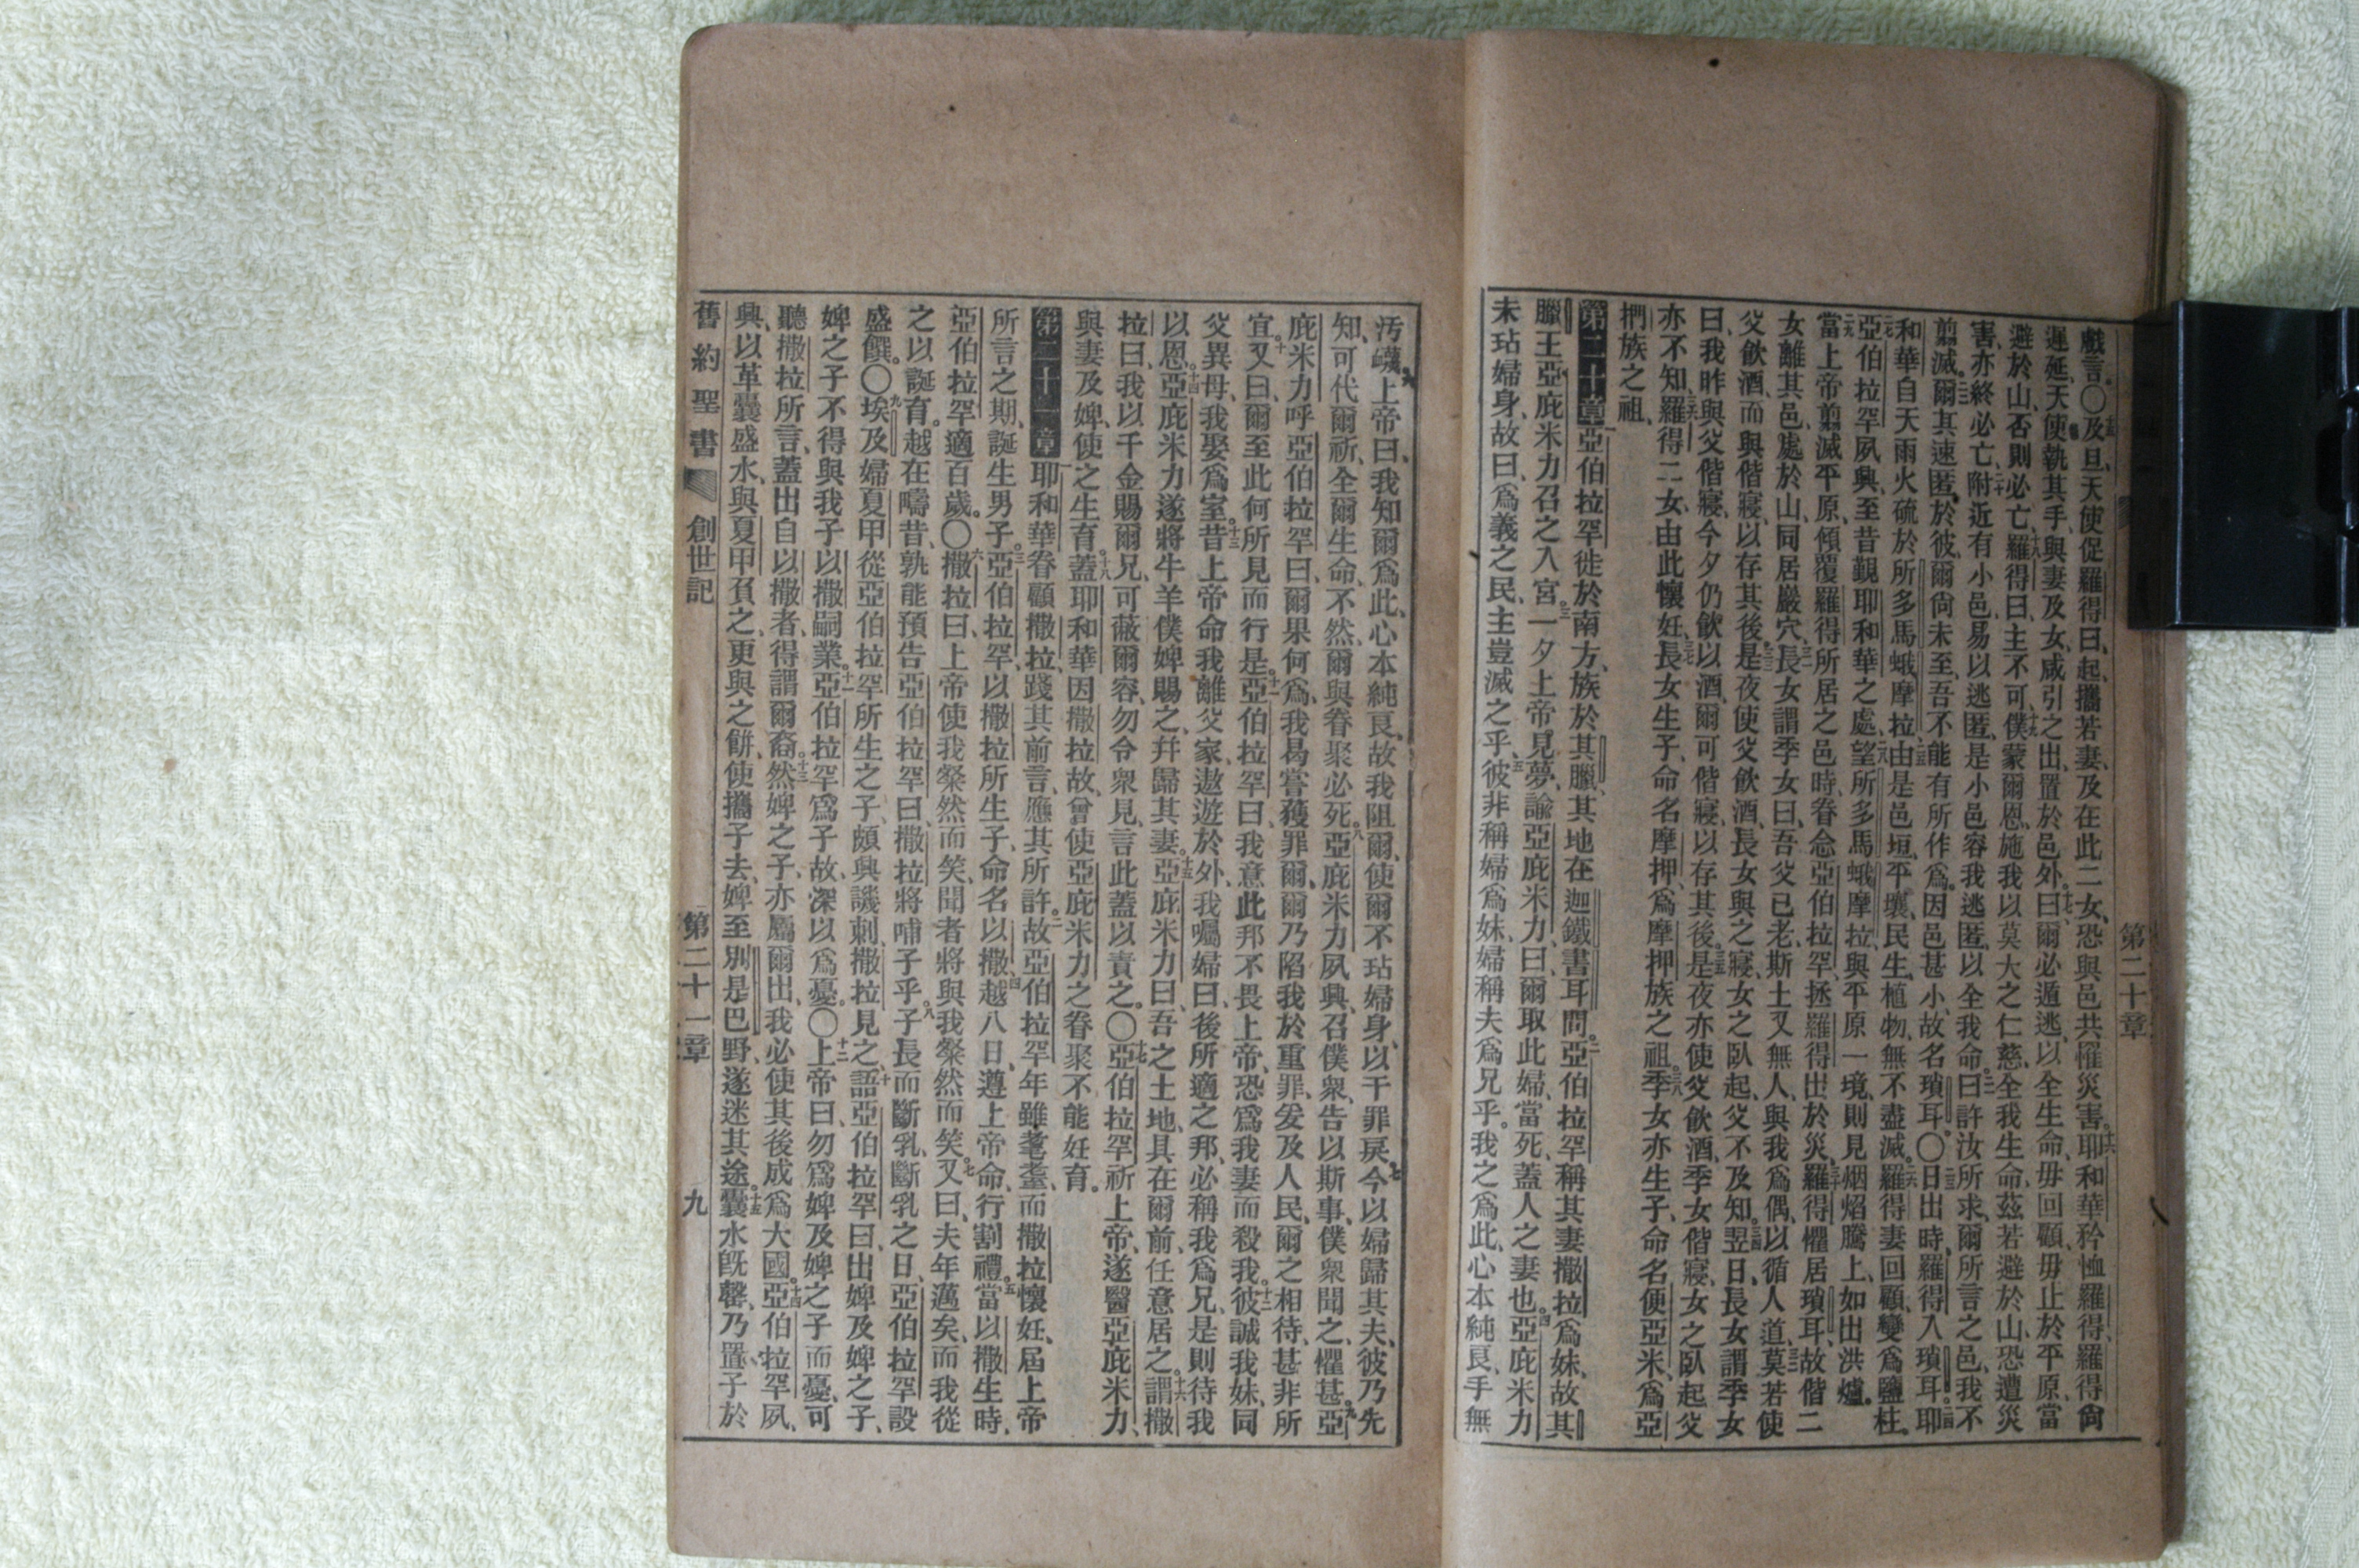 第二十章
戲言。○十五及旦、天使促羅得曰、起、攜若妻、及在此二女、恐與邑共罹災害。十六耶和華矜恤羅得、羅得尙
遲延、天使執其手、與妻及女、咸引之出、置於邑外。十七曰、爾必遁逃、以全生命、毋回顧、毋止於平原、當
避於山、否則必亡、十八羅得曰、主不可、十九僕蒙爾恩、施我以莫大之仁慈、全我生命、茲若避於山、恐遭災
害、亦終必亡、二十附近有小邑、易以逃匿、是小邑容我逃匿、以全我命。二一曰、許汝所求、爾所言之邑、我不
翦滅。二二爾其速匿於彼、爾尙未至、吾不能有所作爲。因邑甚小、故名瑣耳。○二三日出時、羅得入瑣耳。二四耶
和華自天雨火硫於所多馬蛾摩拉、二五由是邑垣平壤、民生植物、無不盡滅。二六羅得妻回顧、變爲鹽柱。
二七亞伯拉罕夙興、至昔覲耶和華之處、二八望所多馬蛾摩拉、與平原一境、則見烟焰騰上、如出洪爐。
二九當上帝翦滅平原、傾覆羅得所居之邑時、眷念亞伯拉罕、拯羅得出於災。三十羅得懼居瑣耳、故偕二
女離其邑、處於山、同居巖穴、三一長女謂季女曰、吾父已老、斯土又無人、與我爲偶、以循人道、三二莫若使
父飲酒、而與偕寢、以存其後。三三是夜使父飲酒、長女與之寢、女之臥起、父不及知。三四翌日、長女謂季女
曰、我昨與父偕寢、今夕仍飲以酒、爾可偕寢、以存其後。三五是夜亦使父飲酒、季女偕寢、女之臥起、父
亦不知、三六羅得二女、由此懷妊、三七長女生子、命名摩押、爲摩押族之祖。三八季女亦生子、命名便亞米、爲亞
捫族之祖、
第二十章一亞伯拉罕徙於南方、族於其臘、其地在迦鐵書耳間。二亞伯拉罕稱其妻撒拉爲妹、故其
臘王亞庇米力召之入宮。三一夕上帝見夢、諭亞庇米力曰、爾取此婦、當死、蓋人之妻也。四亞庇米力
未玷婦身、故曰、爲義之民、主豈滅之乎、五彼非稱婦爲妹、婦稱夫爲兄乎。我之爲此、心本純良、手無
汚衊。六上帝曰、我知爾爲此、心本純良、故我阻爾、使爾不玷婦身、以干罪戾。七今以婦歸其夫、彼乃先
知、可代爾祈、全爾生命、不然、爾與眷聚必死。八亞庇米力夙興、召僕衆、告以斯事、僕衆聞之、懼甚。九亞
庇米力呼亞伯拉罕曰、爾果何爲、我曷嘗獲罪爾、爾乃陷我於重罪、爰及人民、爾之相待、甚非所
宜。十又曰、爾至此何所見而行是。十一亞伯拉罕曰、我意此邦不畏上帝、恐爲我妻而殺我。十二彼誠我妹、同
父異母、我娶爲室。十三昔上帝命我離父家、遨遊於外、我囑婦曰、後所適之邦、必稱我爲兄、是則待我
以恩。十四亞庇米力遂將牛羊僕婢賜之、幷歸其妻。十五亞庇米力曰、吾之土地、具在爾前、任意居之。十六謂撒
拉曰、我以千金賜爾兄、可蔽爾容、勿令衆見、言此蓋以責之。○十七亞伯拉罕祈上帝、遂醫亞庇米力、
與妻及婢、使之生育。十八蓋耶和華因撒拉故、曾使亞庇米力之眷聚不能妊育。
第二十一章一耶和華眷顧撒拉、踐其前言、應其所許。二故亞伯拉罕年雖耄耋、而撒拉懷妊、屆上帝
所言之期、誕生男子。三亞伯拉罕、以撒拉所生子、命名以撒、四越八日、遵上帝命、行割禮。五當以撒生時、
亞伯拉罕適百歲。○六撒拉曰、上帝使我粲然而笑、聞者將與我粲然而笑。七又曰、夫年邁矣、而我從
之以誕育。越在疇昔、孰能預告亞伯拉罕曰、撒拉將哺子乎。八子長而斷乳、斷乳之日、亞伯拉罕設
盛饌。○九埃及婦夏甲、從亞伯拉罕所生之子、頗興譏刺、撒拉見之、十語亞伯拉罕曰、出婢及婢之子、
婢之子不得與我子以撒嗣業。十一亞伯拉罕爲子故、深以爲憂。○十二上帝曰、勿爲婢及婢之子而憂、可
聽撒拉所言、蓋出自以撒者、得謂爾裔。十三然婢之子、亦屬爾出、我必使其後成爲大國。十四亞伯拉罕夙
興、以革囊盛水、與夏甲負之、更與之餅、使攜子去、婢至別是巴野、遂迷其途。十五囊水旣罄、乃置子於
舊約聖書 創世記 第二十一章 九